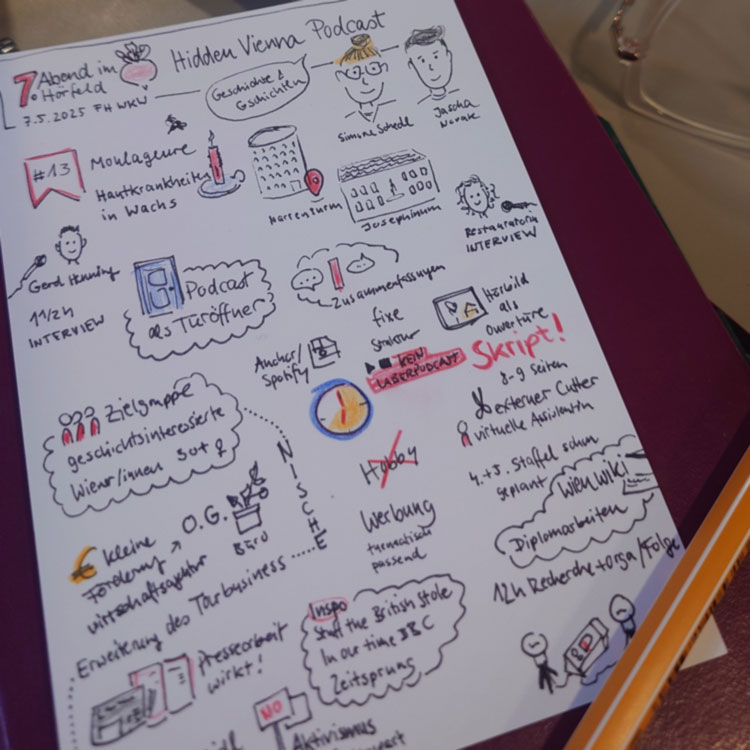 7. Abend im
Hörfeld
7.5.2025 FH WKW
Hidden Vienna Podcast
Geschichte &
Gschichten
Simone Schedl
Jascha
Novak
#13
Moulageure
Hautkrankheiten
in Wachs
Narrenturm
Josephinum
Restauratorin
INTERVIEW
Gerd Henning
1 1/2h
INTERVIEW
Podcast
als Türöffner
Zusammenfassungen
fixe
Struktur
Hörbild
als
Ouvertüre
Anchor/
Spotify
KEIN
LABERPODCAST
Skript!
8-9 Seiten
externer Cutter
virtuelle Assistentin
4.+5. Staffel schon
geplant
Zielgruppe
geschichtsinteressierte
Wiener/innen 30+ ♀
NISCHE
Hobby
Werbung
thematisch
passend
Wien Wiki
Diplomarbeiten
12h Recherche + orga/Folge
€ kleine
Förderung
Wirtschaftsagentur
O.G.
BÜRO
Erweiterung des Tourbusiness
Pressearbeit
wirkt!
Inspo
Stuff the British Stole
In our time BBC
Zeitsprung
NO
Aktivismus